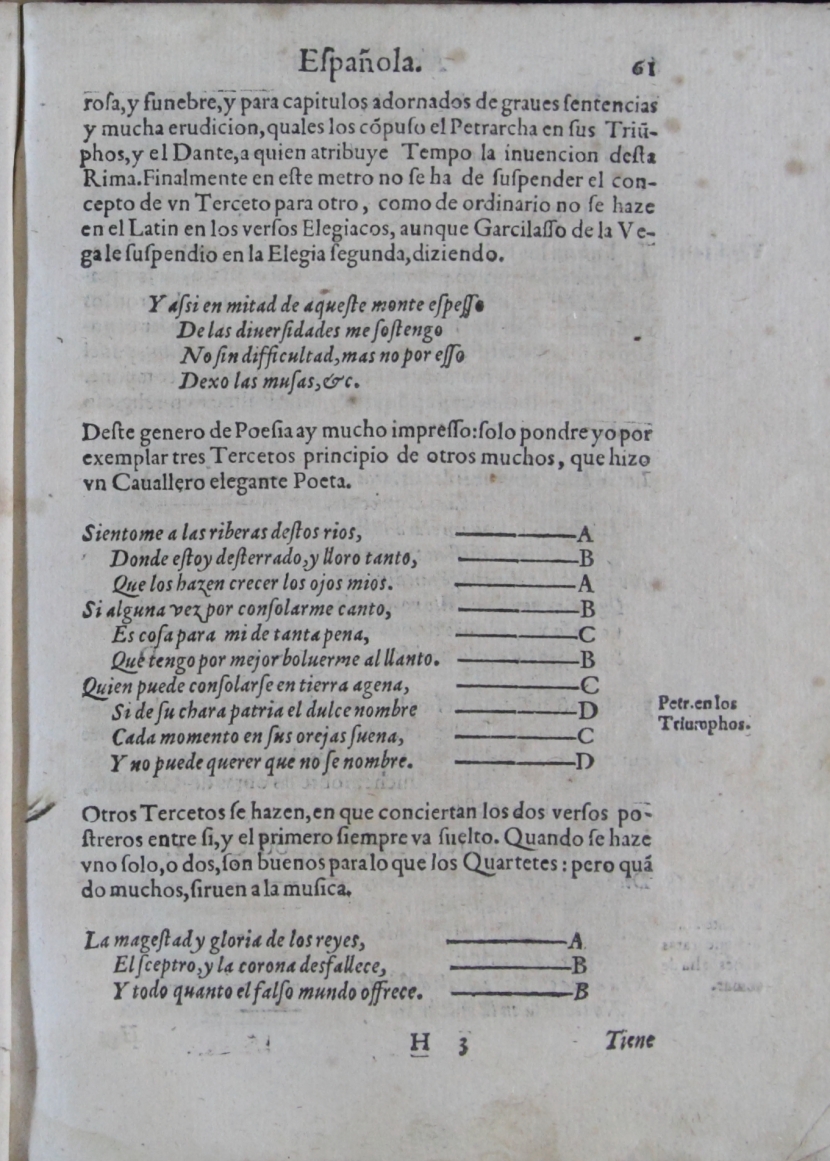 Eſpañola. 61
roſa,y funebre,y para capitulos adornados de graues ſentencias
y mucha erudicion,quales los cópuſo el Petrarcha en ſus Triũ-
phos,y el Dante,a quien atribuye Tempo la inuencion deſta
Rima.Finalmente en eſte metro no ſe ha de ſuſpender el con-
cepto de vn Terceto para otro, como de ordinario no ſe haze
en el Latin en los verſos Elegiacos, aunque Garcilaſſo de la Ve-
ga le ſuſpendio en la Elegia ſegunda,diziendo.
Y aſsi en mitad de aqueſte monte eſpeſſo
De las diuerſidades me ſoſtengo
No ſin difficultad,mas no por eſſo
Dexo las muſas,&c.
Deſte genero de Poeſia ay mucho impreſſo:ſolo pondre yo por
exemplar tres Tercetos principio de otros muchos, que hizo
vn Cauallero elegante Poeta.
Sientome a las riberas deſtos rios, A
Donde eſtoy deſterrado,y lloro tanto, B
Que los hazen crecer los ojos mios. A
Si alguna vez por conſolarme canto, B
Es coſa para mi de tanta pena, C
Que tengo por mejor boluerme al llanto. B
Quien puede conſolarſe en tierra agena, C
Si de ſu chara patria el dulce nombre D
Cada momento en ſus orejas ſuena, C
Y no puede querer que no ſe nombre. D
Petr.en los
Triumphos.
Otros Tercetos ſe hazen,en que conciertan los dos verſos po-
ſtreros entre ſi,y el primero ſiempre va ſuelto. Quando ſe haze
vno ſolo,o dos,ſon buenos para lo que los Quartetes: pero quá
do muchos,ſiruen a la muſica.
La mageſtad y gloria de los reyes, A
El ſceptro,y la corona desfallece, B
Y todo quanto el falſo mundo offrece. B
H 3 Tiene